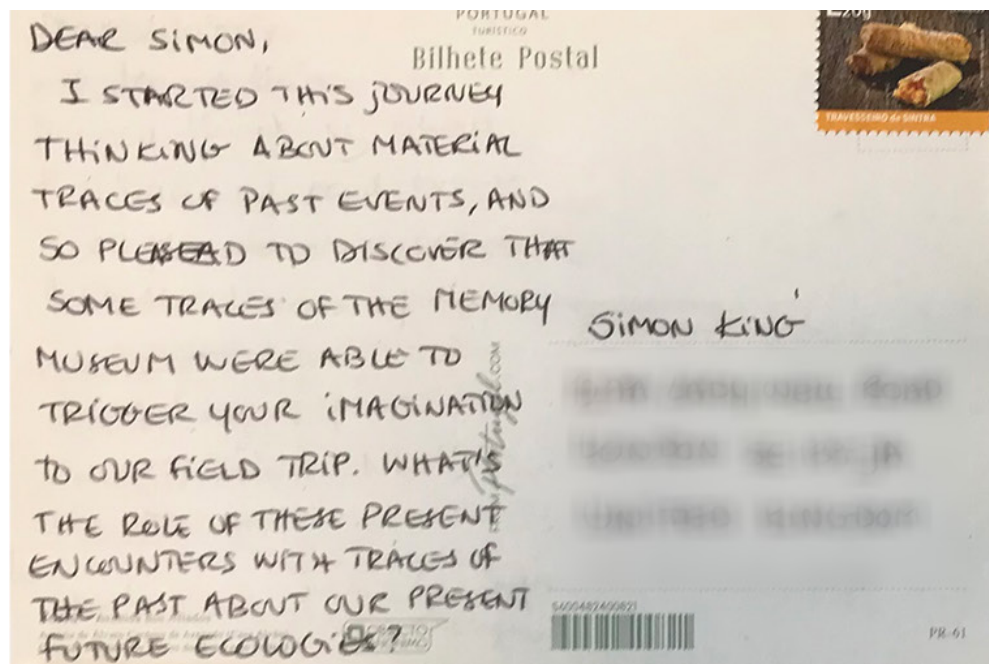 PORTUGAL
TURÍSTICO
Bilhete Postal
DEAR SIMON,
I STARTED THIS JOURNEY
THINKING ABOUT MATERIAL
TRACES OF PAST EVENTS, AND
SO PLEASEAD TO DISCOVER THAT
SOME TRACES OF THE MEMORY
MUSEUM WERE ABLE TO
TRIGGER YOUR IMAGINATION
TO OUR FIELD TRIP. WHAT'S
THE ROLE OF THESE PRESENT
ENCOUNTERS WITH TRACES OF
THE PAST ABOUT OUR PRESENT
FUTURE ECOLOGIES?
TRAVESSEIRO de SINTRA
SIMON KING
5600482400821
PR-61